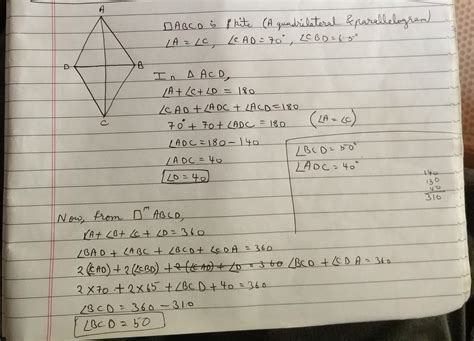 A
D
B
C
□ABCD is kite (A quadrilateral & parallelogram)
∠A = ∠C, ∠CAD = 70°, ∠CBD = 65°
In △ ACD,
∠A + ∠C + ∠D = 180
∠CAD + ∠ADC + ∠ACD = 180
70° + 70 + ∠ADC = 180 (∠A = ∠C)
∠ADC = 180 - 140
∠ADC = 40
∠D = 40
∠BCD = 50°
∠ADC = 40°
140
130
40
310
Now, from □m ABCD,
∠A + ∠B + ∠C + ∠D = 360
∠BAD + ∠ABC + ∠BCD + ∠CDA = 360
2(∠CAD) + 2(∠CBD) + 2(∠CAD) + ∠D = 360 ∠BCD + ∠CDA = 360
2×70 + 2×65 + ∠BCD + 40 = 360
∠BCD = 360 - 310
∠BCD = 50